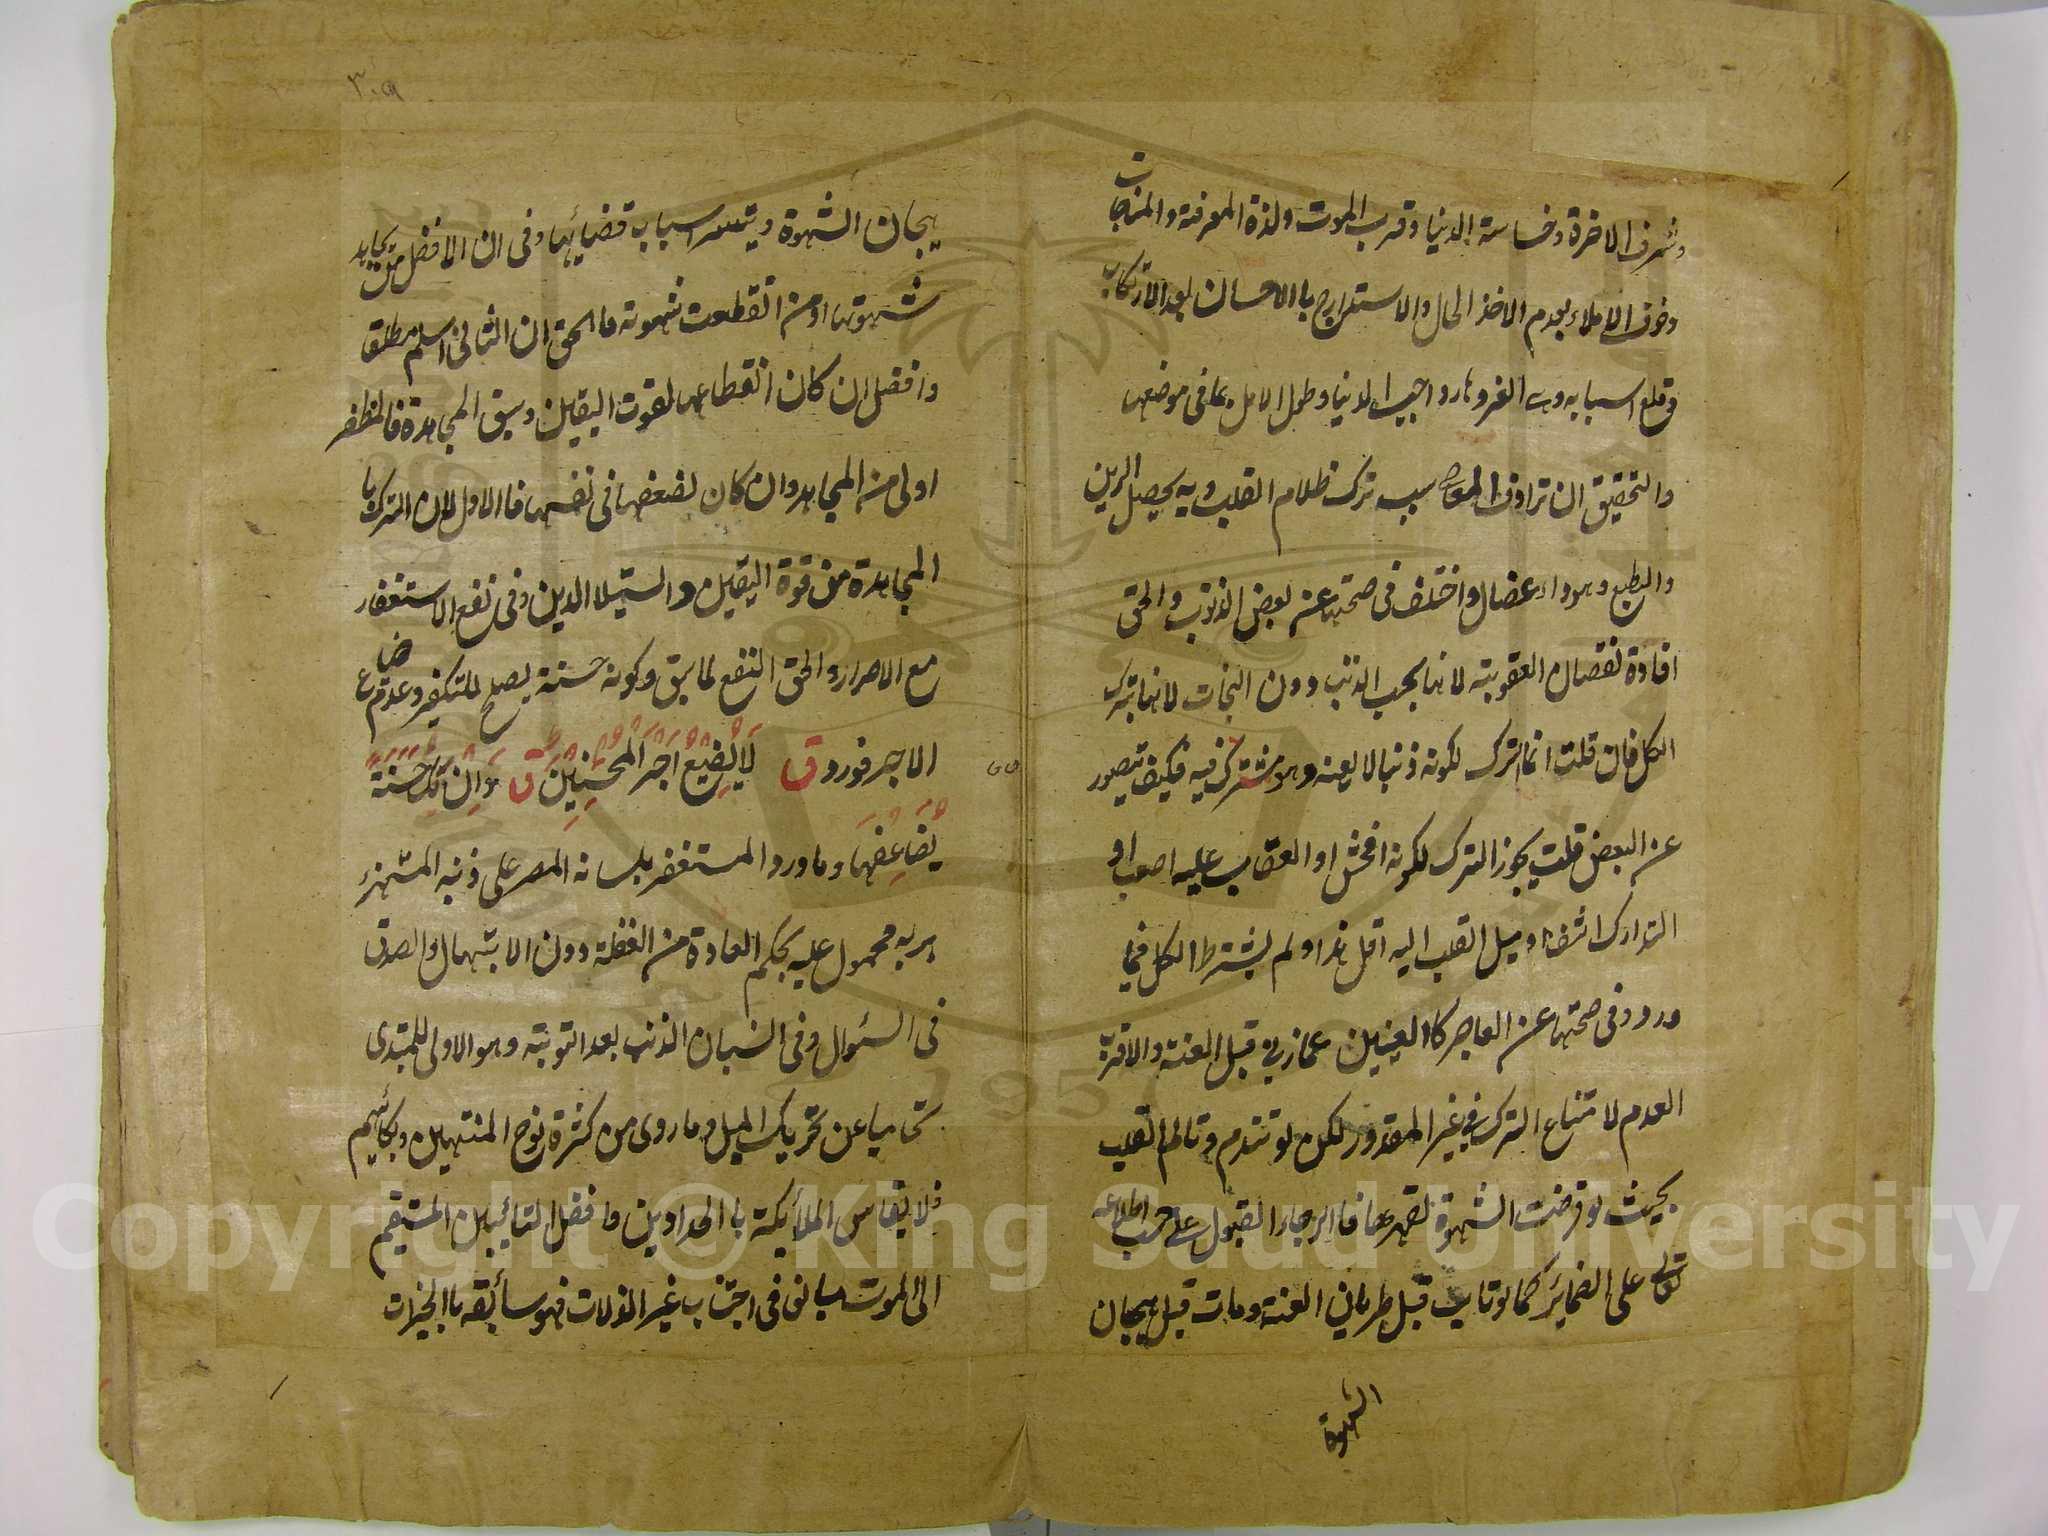 وشرف الاخرة وخساسة الدنيا وقرب الموت ولذة المعرفة والمناجات
وخوف الاملاء بعدم الاخذ الحال والاستدراج با الاحسان بعد الارتكاب
وقلع اسبابه وهى الغرور وحب الدنيا وطول الامل بما فى موضعه
والتحقيق ان ترادف المعاصى سبب تركب ظلام القلب وبه يحصل الرين
والطبع وهو داء عضال واختلف فى صحتها عن بعض الذنوب والحق
افادة نقصان العقوبة لانها بحسب الذنب دون النجات لانها بترك
الكل فان قلت انما الترك لكونه ذنبا لا لعينه وهو مشترك فيه فكيف يتصور
عن البعض قلت يجوز الترك لكونه افحش او العقاب عليه اصعب او
التدارك اشق او ميل القلب اليه اقل هذا ولم يشترط الكل فيما
ورد وفى صحتها عن العاجز كالعنين عما زنى قبل العنة والاقرب
العدم لامتناع الترك فى غير المقدور لكن لو تندم وتالم القلب
بحيث لو فرضت الشهوة لقهرها فالرجاء القبول على حسب اطلاعه
تعالى على الضمائر كما لو تاب قبل طريان العنة ومات قبل هيجان
الشهوة
٣٠٩
هيجان الشهوة وتيسر اسباب قضائها وفى ان الافضل من يجاهد
شهوته او من انقطعت شهوته فالحق ان الثانى اسلم مطلقا
وافضل ان كان انقطاعه لقوت اليقين وسبق المجاهدة فالمظفر
اولى من المجاهد وان كان لضعفها فى نفسها فا الاول لان الترك با
المجاهدة من قوة اليقين واستيلا الدين وفى نفع الاستغفار
مع الاصرار والحق النفع لما سبق وكونه حسنة يصلح للتكفير وعدم ضياع
الاجر فورد ق لَا يُضِيْعُ اَجْرَ الْمُحْسِنِيْنَ ق وَاِنْ تَكُ حَسَنَةً
يُضَاعِفْهَا وما ورد المستغفر بلسانه المصر على ذنبه المستهزئ
بربه محمول عليه بحكم العادة من الغفلة دون الابتهال والصدق
فى السئوال وفى النسيان الذنب بعد التوبة وهو الاولى للمبتدى
تحاميا عن تحريك الميل وما روى من كثرة نوح المنتهين وبكائهم
فلا يقاس الملائكة با الحدادين وافضل التائبين المستقيم
الى الموت مبالغ فى اجتناب غير الذلات فهو سابقه با الخيرات
Copyright © King Saud University
1957